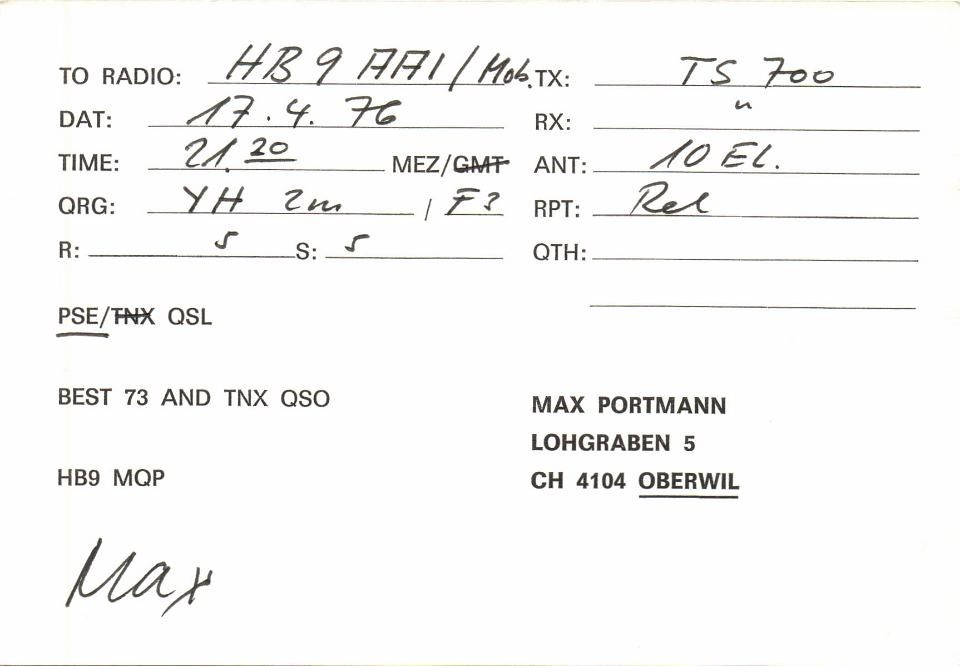 TO RADIO: HB9AA1/Mob. TX: TS 700
DAT: 17.4.76 RX: "
TIME: 21.20 MEZ/GMT ANT: 10 EL.
QRG: YH 2m / F3 RPT: Rel
R: 5 S: 5 QTH:
PSE/TNX QSL
BEST 73 AND TNX QSO
MAX PORTMANN
LOHGRABEN 5
HB9 MQP
CH 4104 OBERWIL
Max